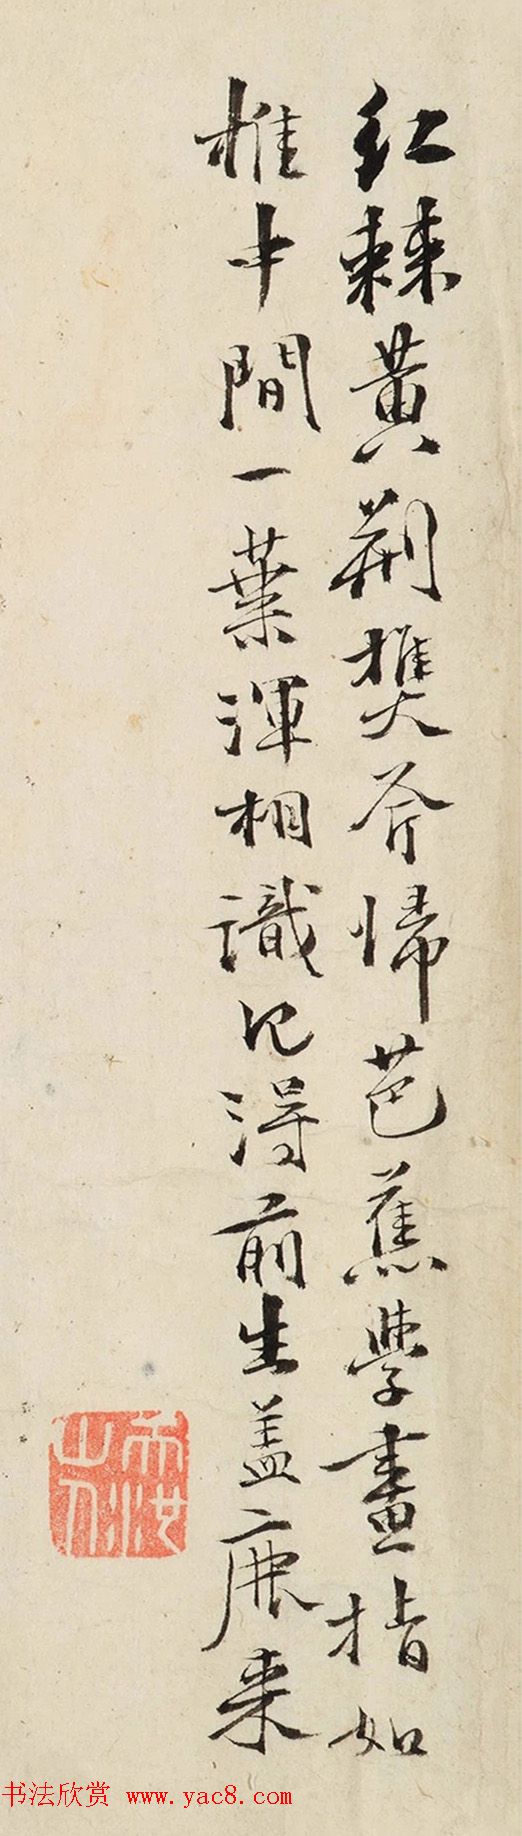 紅棘黄荊樵斧帰芭蕉學畫指如
椎中間一葉渾相識記得前生蓋鹿来
书法欣赏 www.yac8.com